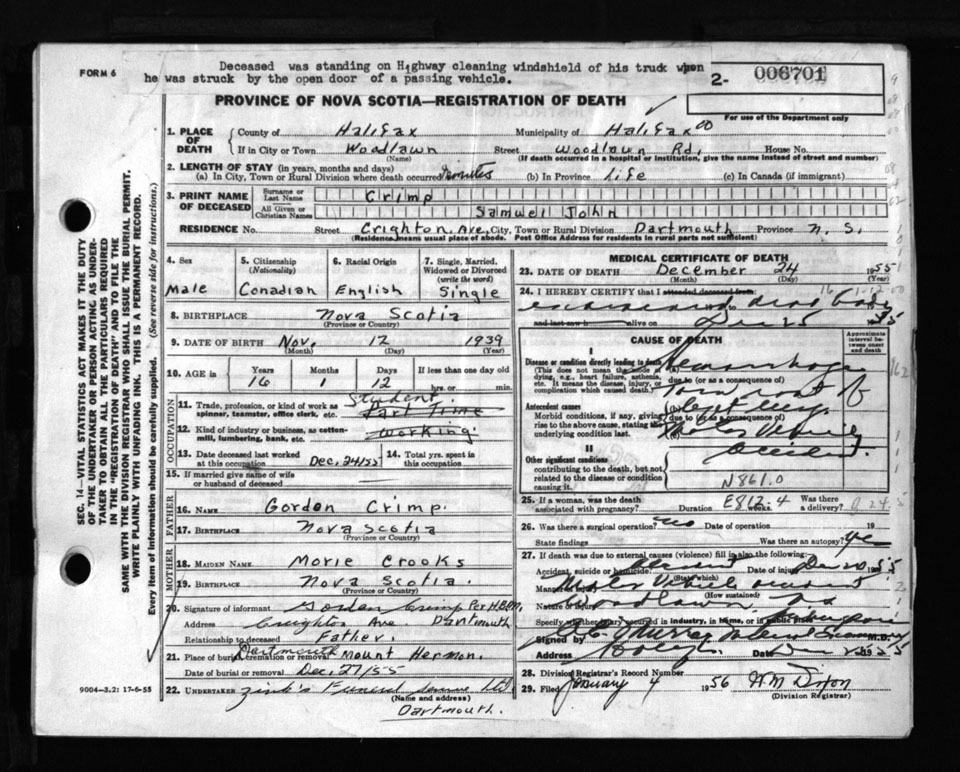 FORM 6
Deceased was standing on Highway cleaning windshield of his truck when
he was struck by the open door of a passing vehicle.
2- 006701
For use of the Department only
PROVINCE OF NOVA SCOTIA—REGISTRATION OF DEATH
1. PLACE OF DEATH
County of Halifax Municipality of Halifax
If in City or Town Woodlawn Street Woodlawn Rd. House No.
(Name) (If death occurred in a hospital or institution, give the name instead of street and number)
2. LENGTH OF STAY (in years, months and days)
(a) In City, Town or Rural Division where death occurred minutes (b) In Province Life (c) In Canada (if immigrant)
3. PRINT NAME OF DECEASED
Surname or Last Name Crimp
All Given or Christian Names Samuell John
RESIDENCE No. Street Crighton Ave. City, Town or Rural Division Dartmouth Province N.S.
(Residence means usual place of abode. Post Office Address for residents in rural parts not sufficient)
4. Sex Male
5. Citizenship (Nationality) Canadian
6. Racial Origin English
7. Single, Married, Widowed or Divorced (write the word) Single
8. BIRTHPLACE Nova Scotia
(Province or Country)
9. DATE OF BIRTH Nov. 12 1939
(Month) (Day) (Year)
10. AGE Years 16 Months 1 Days 12 If less than one day hrs. or min.
OCCUPATION
11. Trade, profession, or kind of work as spinner, teamster, office clerk, etc. Student. Part Time
12. Kind of industry or business, as cotton-mill, lumbering, bank, etc. Working.
13. Date deceased last worked at this occupation Dec. 24/55
14. Total yrs. spent in this occupation
15. If married give name of wife or husband of deceased
FATHER
16. NAME Gordon Crimp.
17. BIRTHPLACE Nova Scotia
(Province or Country)
MOTHER
18. MAIDEN NAME Marie Crooks
19. BIRTHPLACE Nova Scotia.
(Province or Country)
20. Signature of informant Gordon Crimp Per H.B.M.
Address Creighton Ave. Dartmouth
Relationship to deceased Father.
21. Place of burial, cremation or removal Dartmouth Mount Hermon.
Date of burial or removal Dec. 27/55
22. UNDERTAKER Zink's Funeral Service Ltd
(Name and address)
Dartmouth.
MEDICAL CERTIFICATE OF DEATH
23. DATE OF DEATH December 24 1955
(Month) (Day) (Year)
24. I HEREBY CERTIFY that I attended deceased from
examined dead body
and last saw h alive on Dec 25 55
CAUSE OF DEATH
Approximate interval between onset and death
I
Disease or condition directly leading to death
(This does not mean the mode of dying, e.g., heart failure, asthenia, etc. It means the disease, injury, or complication which caused death.)
(a) Hemorrhage
due to (or as a consequence of)
Antecedent causes
Morbid conditions, if any, giving rise to the above cause, stating the underlying condition last.
(b)
due to (or as a consequence of)
(c) Motor Vehicle
accident.
II
Other significant conditions
contributing to the death, but not related to the disease or condition causing it.
N861.0
E812.4
25. If a woman, was the death associated with pregnancy? Duration weeks. Was there a delivery?
26. Was there a surgical operation? no Date of operation 19
State findings Was there an autopsy? yes
27. If death was due to external causes (violence) fill in also the following:
Accident, suicide or homicide? Accident Date of injury
(State which)
Manner of injury Motor Vehicle accident
(How sustained)
Nature of injury Woodlawn
Specify whether injury occurred in industry, in home, or in public place
Signed by Murray Medical Examiner M.D.
Address Date Dec 1955
28. Division Registrar's Record Number
29. Filed January 4 1956 H M Dixon
(Division Registrar)
SEC. 14—VITAL STATISTICS ACT MAKES IT THE DUTY
OF THE UNDERTAKER OR PERSON ACTING AS UNDER-
TAKER TO OBTAIN ALL THE PARTICULARS REQUIRED
IN THE "REGISTRATION OF DEATH" AND TO FILE THE
SAME WITH THE DIVISION REGISTRAR WHO SHALL ISSUE THE BURIAL PERMIT.
WRITE PLAINLY WITH UNFADING INK. THIS IS A PERMANENT RECORD.
Every item of information should be carefully supplied. (See reverse side for instructions.)
9004—3.2: 17-6-55